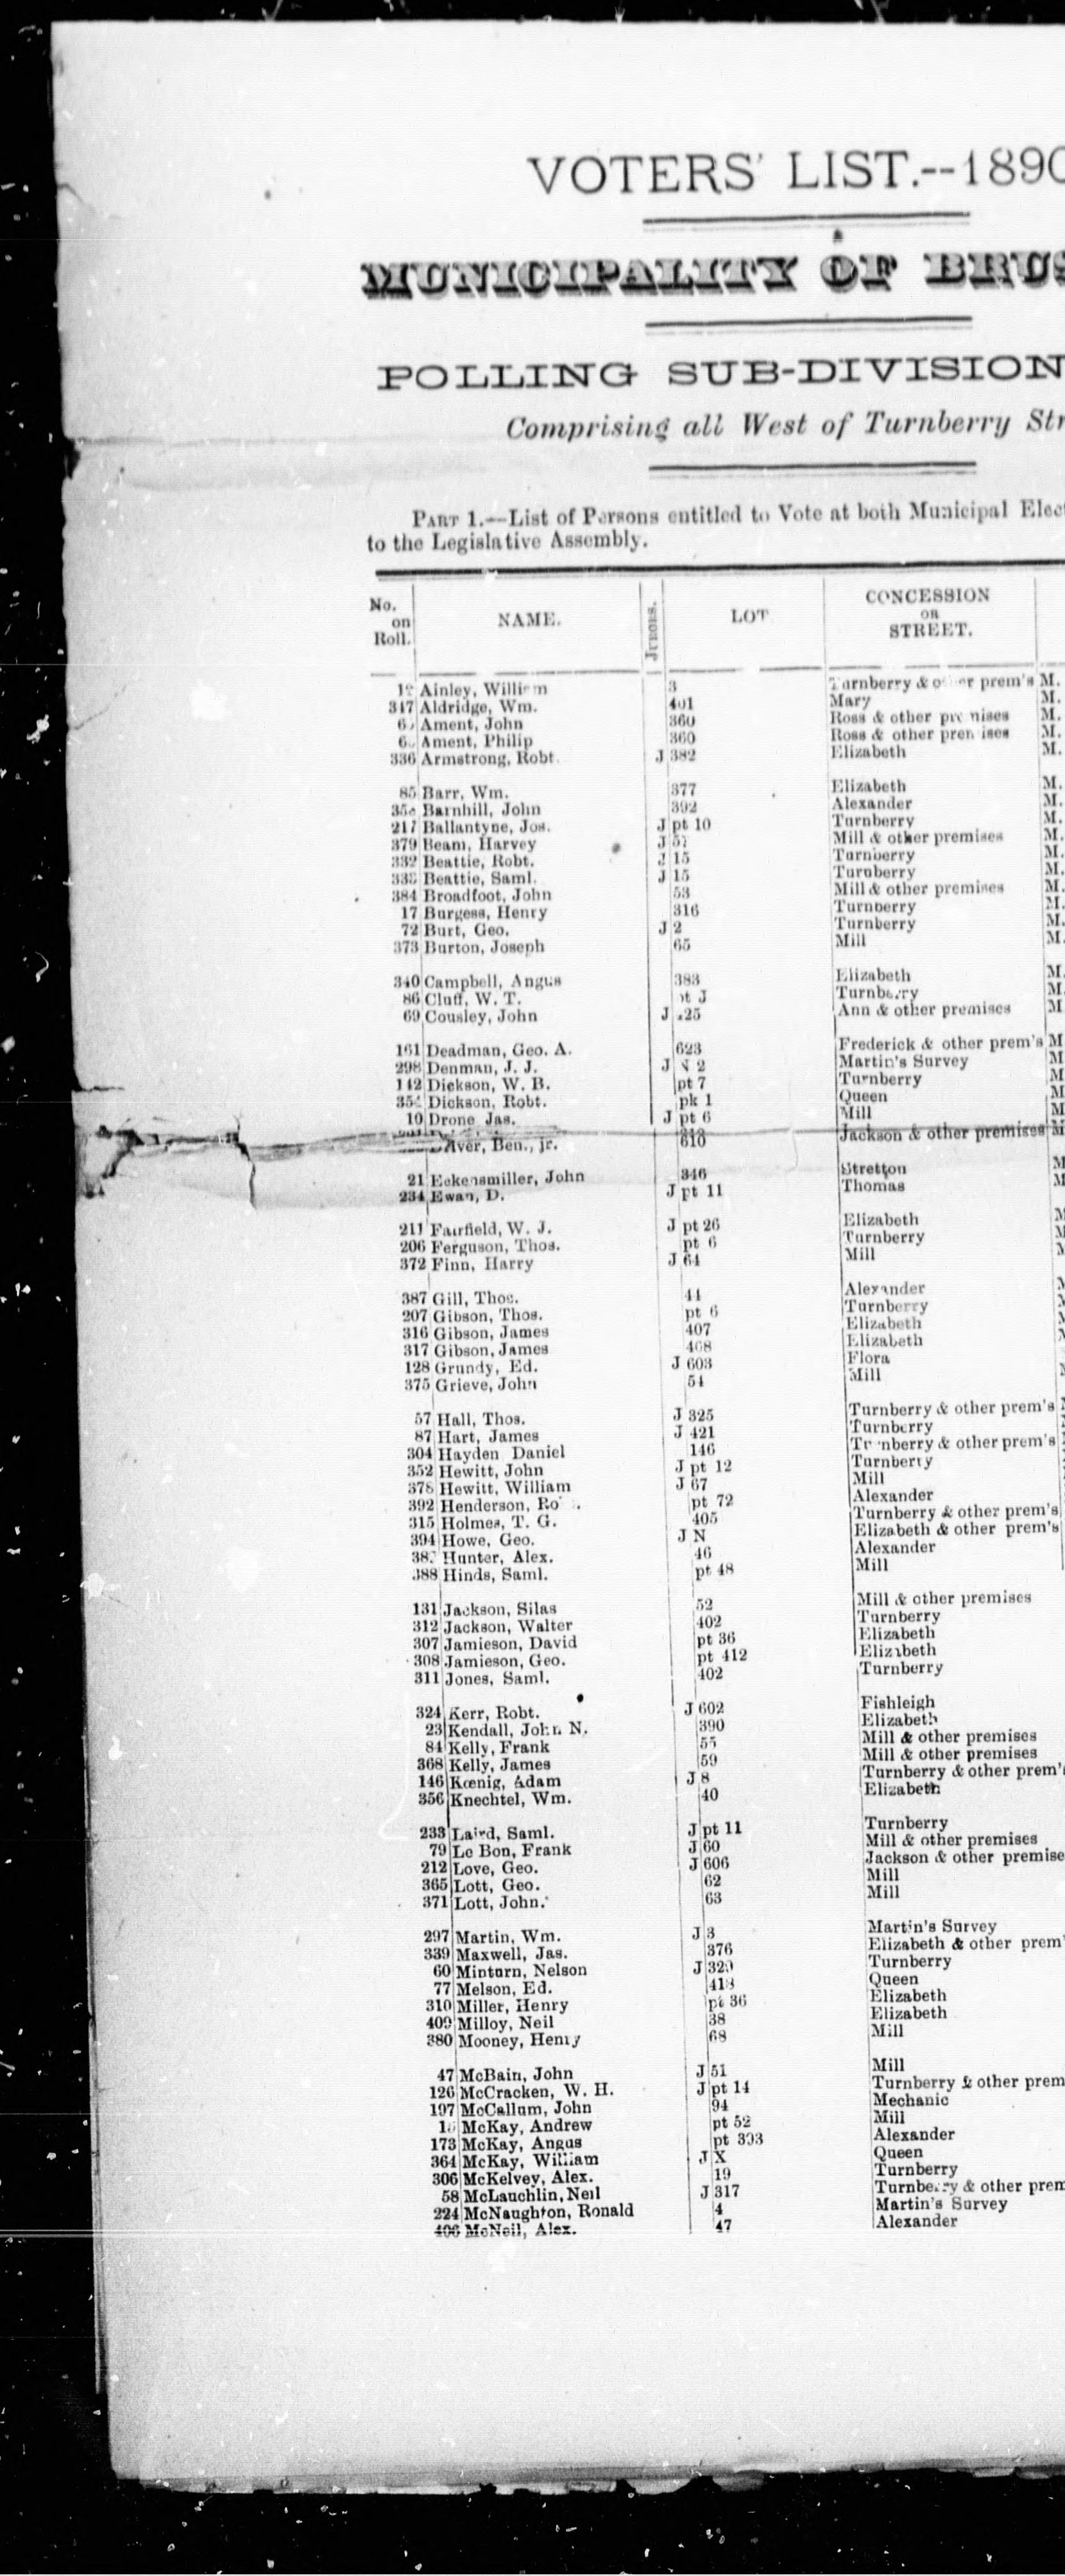 VOTERS' LIST.--1890
MUNICIPALITY OF BRUS
POLLING SUB-DIVISION
Comprising all West of Turnberry Str
PART 1.—List of Persons entitled to Vote at both Municipal Elec
to the Legislative Assembly.
No. on Roll. NAME. JUDGES. LOT CONCESSION OR STREET.
Ainley, William 3 Turnberry & other prem's M.
347 Aldridge, Wm. 401 Mary M.
Ament, John 360 Ross & other premises M.
Ament, Philip 360 Ross & other premises M.
336 Armstrong, Robt. J 382 Elizabeth M.
85 Barr, Wm. 377 Elizabeth M.
Barnhill, John 392 Alexander M.
217 Ballantyne, Jos. J pt 10 Turnberry M.
379 Beam, Harvey J Mill & other premises M.
332 Beattie, Robt. J 15 Turnberry M.
333 Beattie, Saml. J 15 Turnberry M.
384 Broadfoot, John 53 Mill & other premises M.
17 Burgess, Henry 316 Turnberry M.
72 Burt, Geo. J 2 Turnberry M.
373 Burton, Joseph 65 Mill M.
340 Campbell, Angus 383 Elizabeth M.
86 Cluff, W. T. pt J Turnberry M.
69 Cousley, John J Ann & other premises M
161 Deadman, Geo. A. 623 Frederick & other prem's M
298 Denman, J. J. J N 2 Martin's Survey M
142 Dickson, W. B. pt 7 Turnberry M
Dickson, Robt. pk 1 Queen M
10 Drone Jas. J pt 6 Mill M
Ben., jr. 610 Jackson & other premises M
21 Eckensmiller, John 346 Stretton M
234 Ewan, D. J pt 11 Thomas M
211 Fairfield, W. J. J pt 26 Elizabeth M
206 Ferguson, Thos. pt 6 Turnberry M
372 Finn, Harry J 64 Mill M
387 Gill, Thos. 44 Alexander M
207 Gibson, Thos. pt 6 Turnberry M
316 Gibson, James 407 Elizabeth M
317 Gibson, James 408 Elizabeth M
128 Grundy, Ed. J 603 Flora
375 Grieve, John 54 Mill M
57 Hall, Thos. J 325 Turnberry & other prem's
87 Hart, James J 421 Turnberry
304 Hayden Daniel 146 Turnberry & other prem's
352 Hewitt, John J pt 12 Turnberry
378 Hewitt, William J 67 Mill
392 Henderson, Ro pt 72 Alexander
315 Holmes, T. G. 405 Turnberry & other prem's
394 Howe, Geo. J N Elizabeth & other prem's
Hunter, Alex. 46 Alexander
388 Hinds, Saml. pt 48 Mill
131 Jackson, Silas 52 Mill & other premises
312 Jackson, Walter 402 Turnberry
307 Jamieson, David pt 36 Elizabeth
308 Jamieson, Geo. pt 412 Elizabeth
311 Jones, Saml. 402 Turnberry
324 Kerr, Robt. J 602 Fishleigh
23 Kendall, John N. 390 Elizabeth
84 Kelly, Frank 55 Mill & other premises
368 Kelly, James 59 Mill & other premises
146 Kœnig, Adam J 8 Turnberry & other prem's
356 Knechtel, Wm. 40 Elizabeth
233 Laird, Saml. J pt 11 Turnberry
79 Le Bon, Frank J 60 Mill & other premises
212 Love, Geo. J 606 Jackson & other premise
365 Lott, Geo. 62 Mill
371 Lott, John. 63 Mill
297 Martin, Wm. J 3 Martin's Survey
339 Maxwell, Jas. 376 Elizabeth & other prem'
60 Minturn, Nelson J 320 Turnberry
77 Melson, Ed. 413 Queen
310 Miller, Henry pt 36 Elizabeth
409 Milloy, Neil 38 Elizabeth
380 Mooney, Henry 68 Mill
47 McBain, John J 51 Mill
126 McCracken, W. H. J pt 14 Turnberry & other prem
197 McCallum, John 94 Mechanic
McKay, Andrew pt 52 Mill
173 McKay, Angus pt 393 Alexander
364 McKay, William J X Queen
306 McKelvey, Alex. 19 Turnberry
58 McLauchlin, Neil J 317 Turnberry & other prem
224 McNaughton, Ronald 4 Martin's Survey
406 McNeil, Alex. 47 Alexander